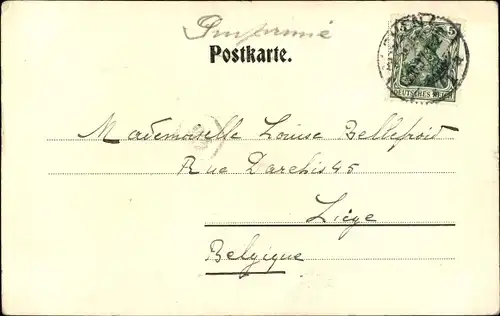 Imprimé
Postkarte.
DEUTSCHES REICH
Mademoiselle Louise Bellefroid
Rue Darchis 45
Liège
Belgique